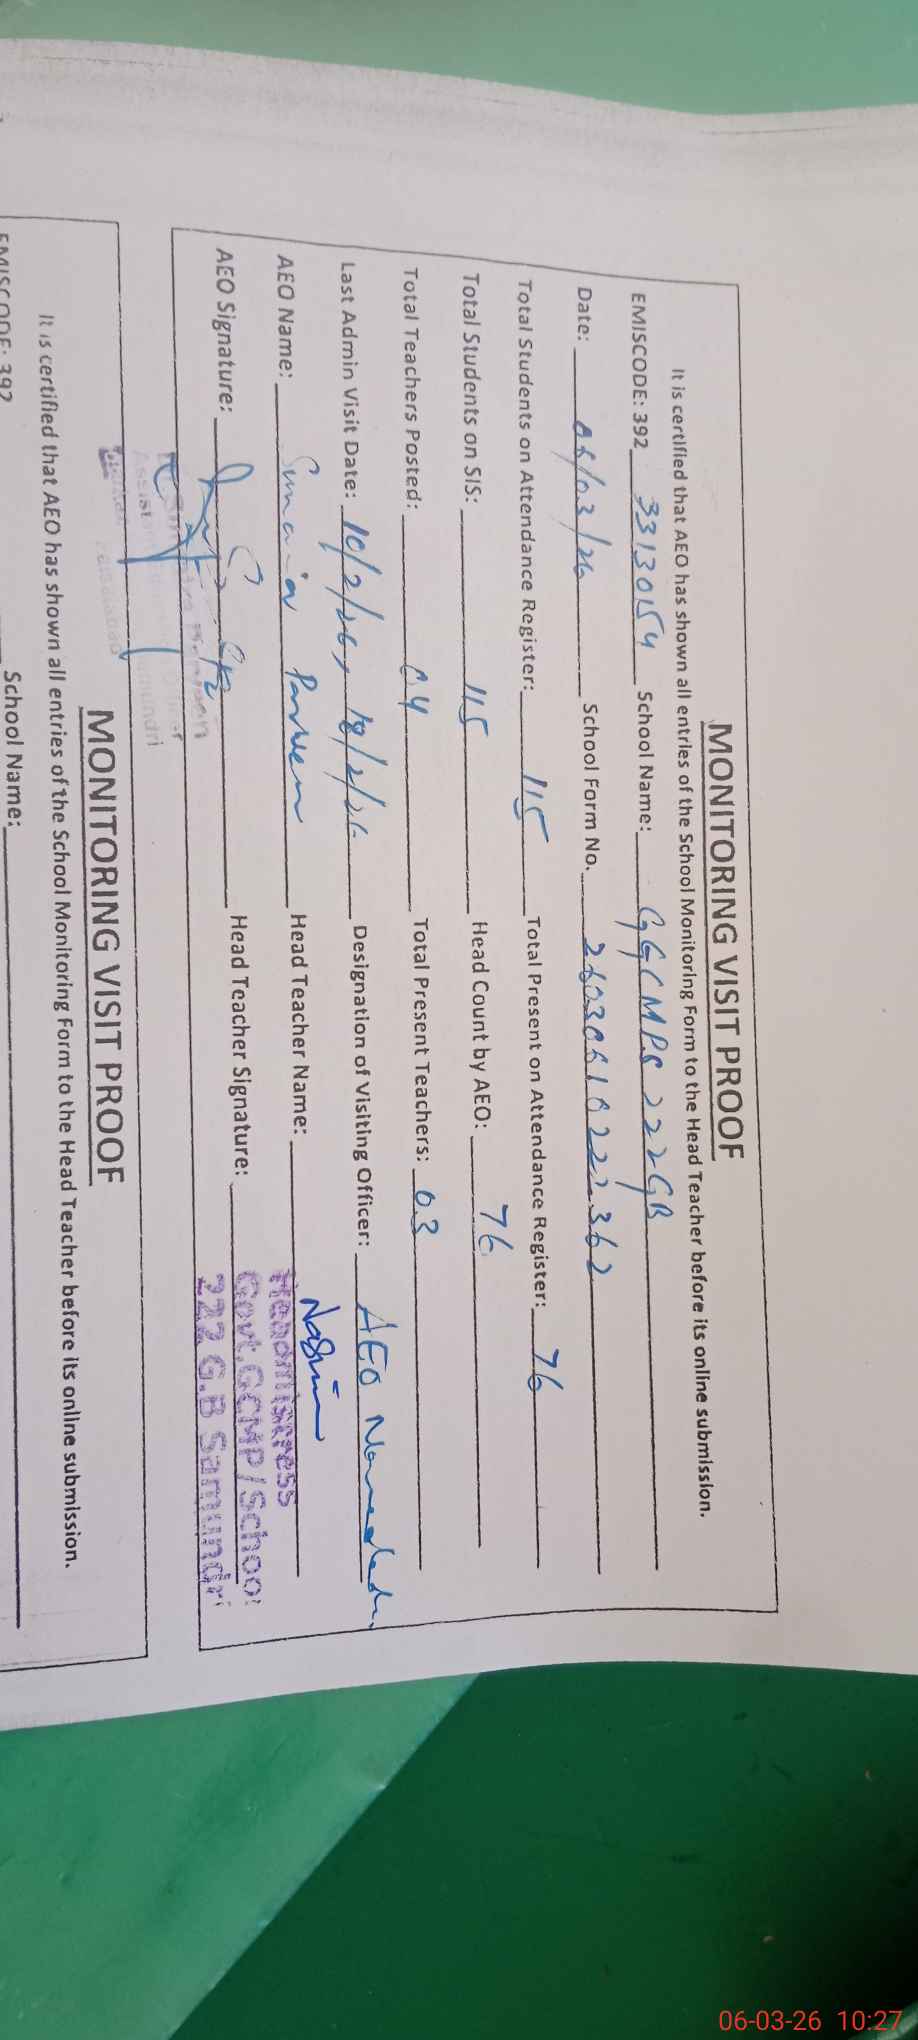 MONITORING VISIT PROOF
It is certified that AEO has shown all entries of the School Monitoring Form to the Head Teacher before its online submission.
EMISCODE: 392 33130154 School Name: GGCMPS 222GB
Date: 06/03/26 School Form No. 26030610222362
Total Students on Attendance Register: 115 Total Present on Attendance Register: 76
Total Students on SIS: 115 Head Count by AEO: 76
Total Teachers Posted: 04 Total Present Teachers: 03
Last Admin Visit Date: 10/2/26, 18/2/26 Designation of Visiting Officer: AEO
AEO Name: Sumaira Parveen Head Teacher Name:
AEO Signature: Head Teacher Signature:
Headmistress
Govt.GCMP/School
222 G.B Samundri
MONITORING VISIT PROOF
It is certified that AEO has shown all entries of the School Monitoring Form to the Head Teacher before its online submission.
EMISCODE: 392 School Name:
06-03-26 10:27